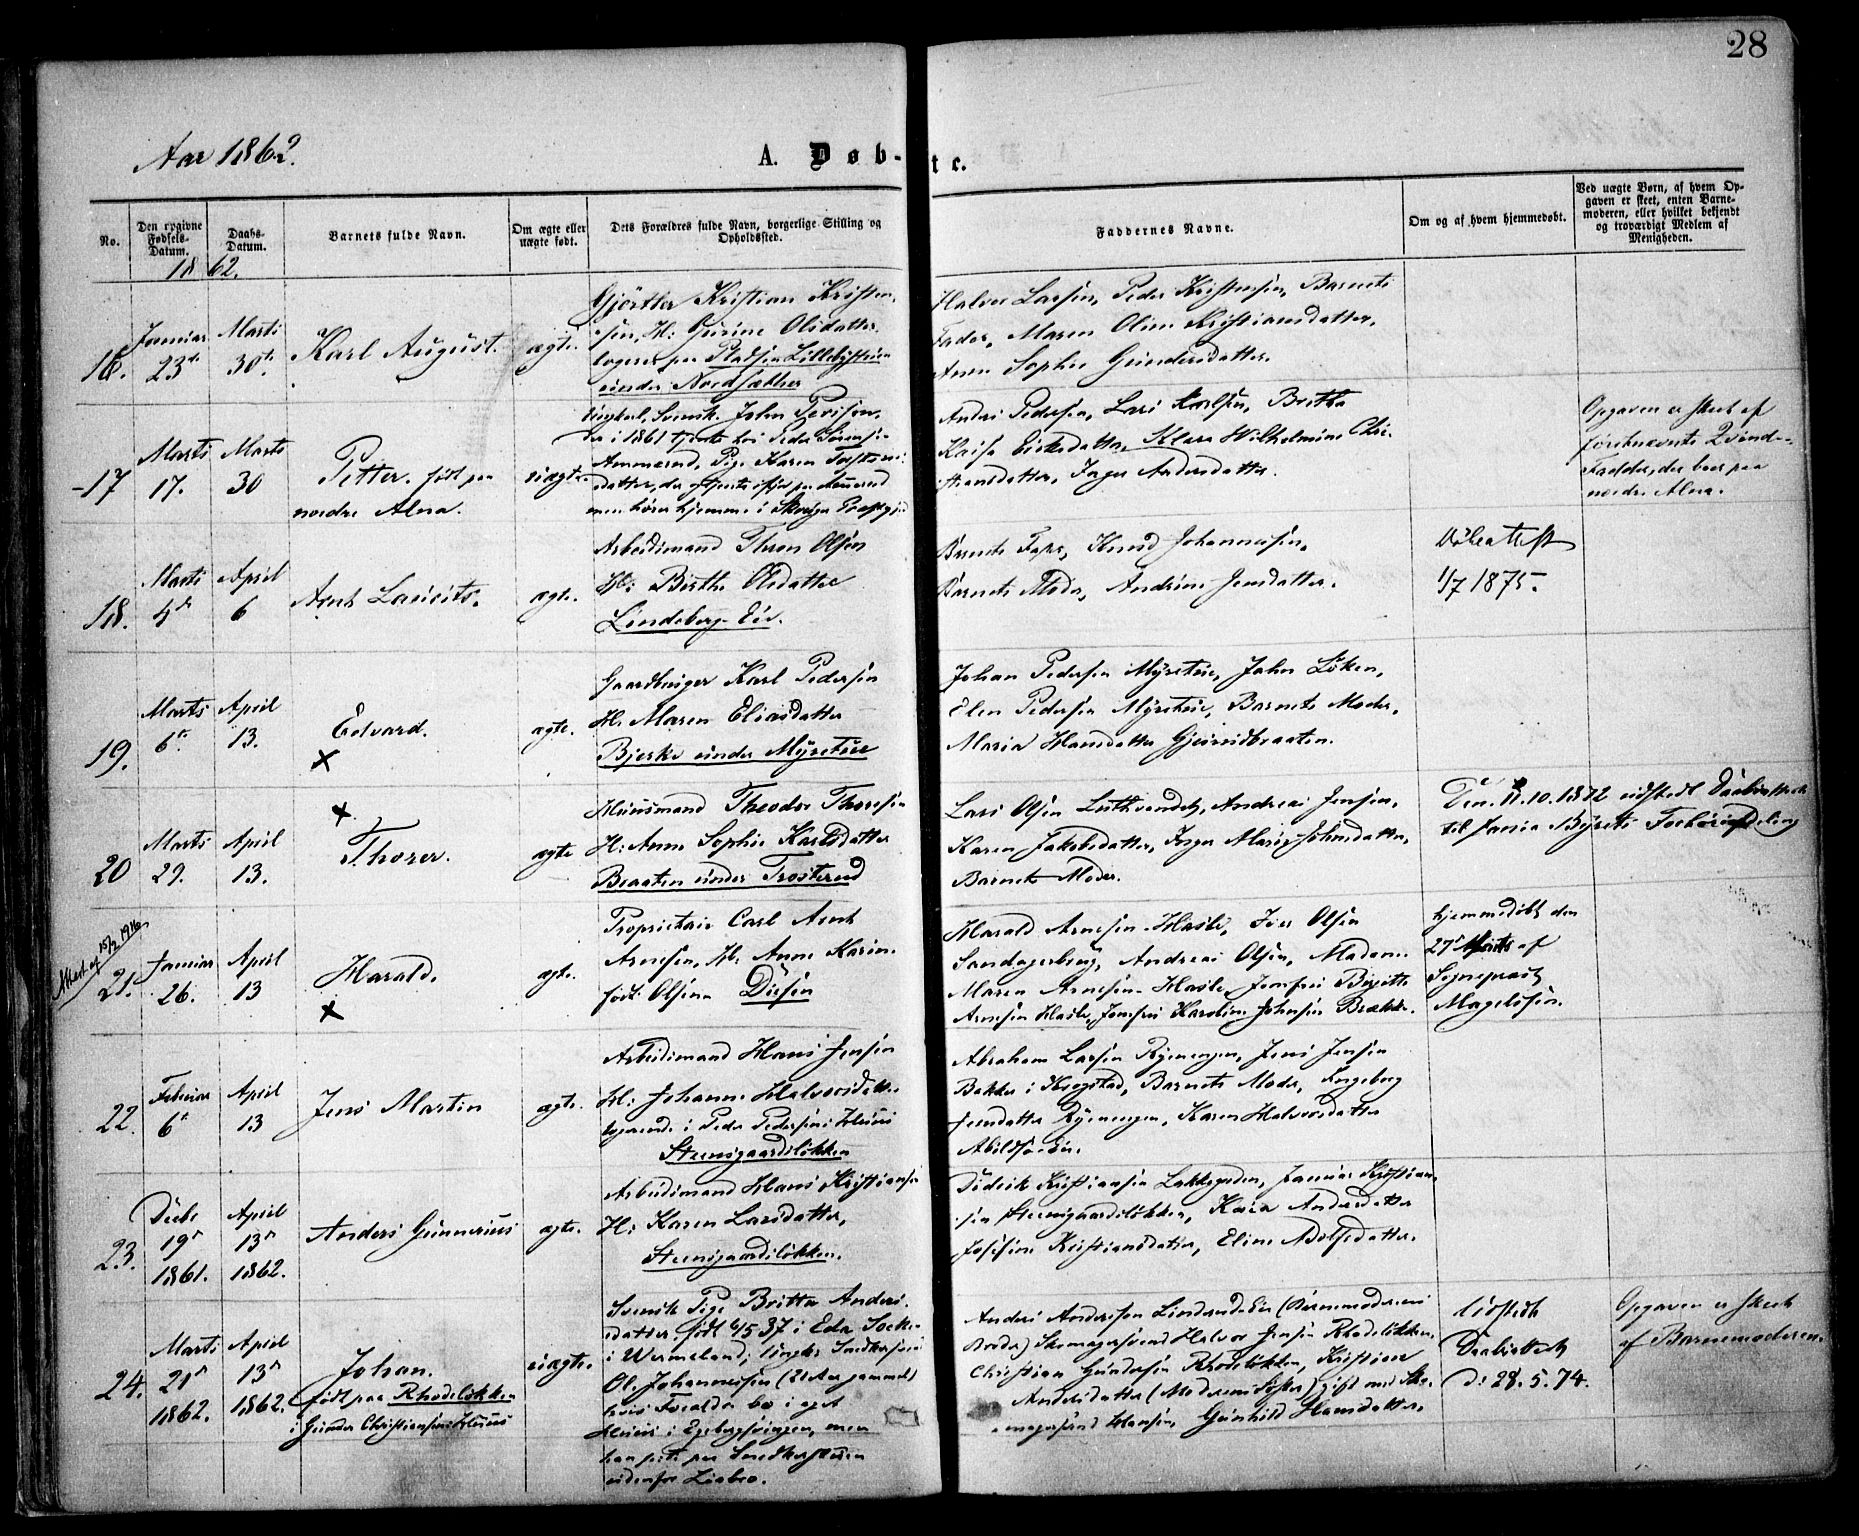 28
Aar 1862.
A. Døb-
te.
No.
Den opgivne Fødsels-Datum.
Daabs-Datum.
Barnets fulde Navn.
Om ægte eller uægte født.
Dets Forældres fulde Navn, borgerlige Stilling og Opholdssted.
Faddernes Navne.
Om og af hvem hjemmedøbt.
Ved uægte Børn, af hvem Opgaven er skeet, enten Barnemoderen, eller hvilket bekjendt og troværdigt Medlem af Menigheden.
1862.
16.
Januar 23de
Marts 30te
Karl August.
ægte.
Kristian Kristen-
sen, H: Gurine Olsdatter
logerer paa Pladsen
under Nordsæther
Halvor Larsen, Peder Kristensen, Barnets
Fader, Maren Oline Kristiansdatter,
Anne Sophie Gundersdatter.
17
Marts 17.
Marts 30
Petter. født paa
nordre Alna.
uægte.
Ungkarl, Svensk
da i 1861 tjente hos Peder
Ammerud, Pige Karen
men hører hjemme i
Andr. Pedersen, Lars Karlsen, Britta
Kaisa Eriksdatter, Klara Wilhelmine Chri-
stiansdatter, Inger Andersdatter.
Opgaven er skeet af
førstnævnte Qvinde-
Fadder, der boer paa
nordre Alna.
18.
Marts 4de
April 6
Arnt Lauritz.
ægte.
Arbeidsmand Thron Olsen
H: Berthe Olsdatter
Lindeberg-Eie.
Barnets Fader, Knud Johannesen,
Barnets Moder, Andrine Jensdatter.
Døbeattest
1/7 1875.
19.
Marts 6te
April 13.
Edvard.
ægte.
Gaardbruger Karl Pedersen
H: Maren Eliasdatter
Bjerke under
Johan Pedersen
Elen Pedersen
Barnets Moder,
Maria Hansdatter
20
Marts 29.
April 13.
Thorer.
ægte
Huusmand Theodor Thoresen
H: Anne Sophie Karlsdatter
Braaten under Trosterud
Lars Olsen
Andreas Jensen,
Karen Jakobsdatter, Inger Marie Johnsdatter,
Barnets Moder.
Den 11.10.1872 udstedt Daabsattest
Attest af 15/2 1916
21.
Januar 26.
April 13
Harald.
ægte.
Proprietair Carl Arnt
Arnesen, H: Anne Karine
født Olsen
Harald Arnesen Hasle, Iver Olsen
Andreas Olsen, Madame
Maren Arnesen Hasle, Jomfru Birgitte
Arnesen Hasle, Jomfru Karoline Johnsen Brække.
hjemmedøbt den
27de Marts af
Sogneprest
Magelssen.
22.
Februar 6te
April 13
Jens Martin
ægte.
Arbeidsmand Hans Jensen
H: Johanne Halvorsdatter
logerende i Peder Pedersens Huus
Steensgaardsløkken
Abraham Larsen Ryenengen, Jens Jensen
Bakke i Krogstad, Barnets Moder, Ingeborg
Jensdatter Ryenengen, Karen Halvorsdatter
Abildsø Eie.
23.
Decbr 19de 1861.
April 13de 1862.
Anders Gunnerius
ægte.
Arbeidsmand Hans Kristiansen
H: Karen Larsdatter,
Steensgaardsløkken.
Didrik Kristiansen
Kristian-
sen Steensgaardsløkken, Karen Andersdatter
Josefine Kristiansdatter, Eline Adolfsdatter.
24.
Marts 21de 1862.
April 13de 1862.
Johan.
født paa Rhodeløkken
i Gunder Christiansens Huus
uægte.
Svensk Pige Britta Anders-
datter, født
37 i Eda Sokn
i Wermeland; Ungk: Snedkersvend
Ole Johannesen (21 Aar gammel)
hvis Forældre bo i eget
Huus i Egebergsvingen, men
han
udenfor Liabro.
Anders Andersen
(Barnemoderens
Broder) Skomagersvend Halvor Jensen Rhodeløkken,
Christian Gundersen Rhodeløkken, Kristine
Andersdatter (Moderens Søster) gift med Sko-
magersvend Hansen, Gunhild Hansdatter.
Udstedt
Daabsattest
d: 28.5.74.
Opgaven er skeet
af Barnemoderen.